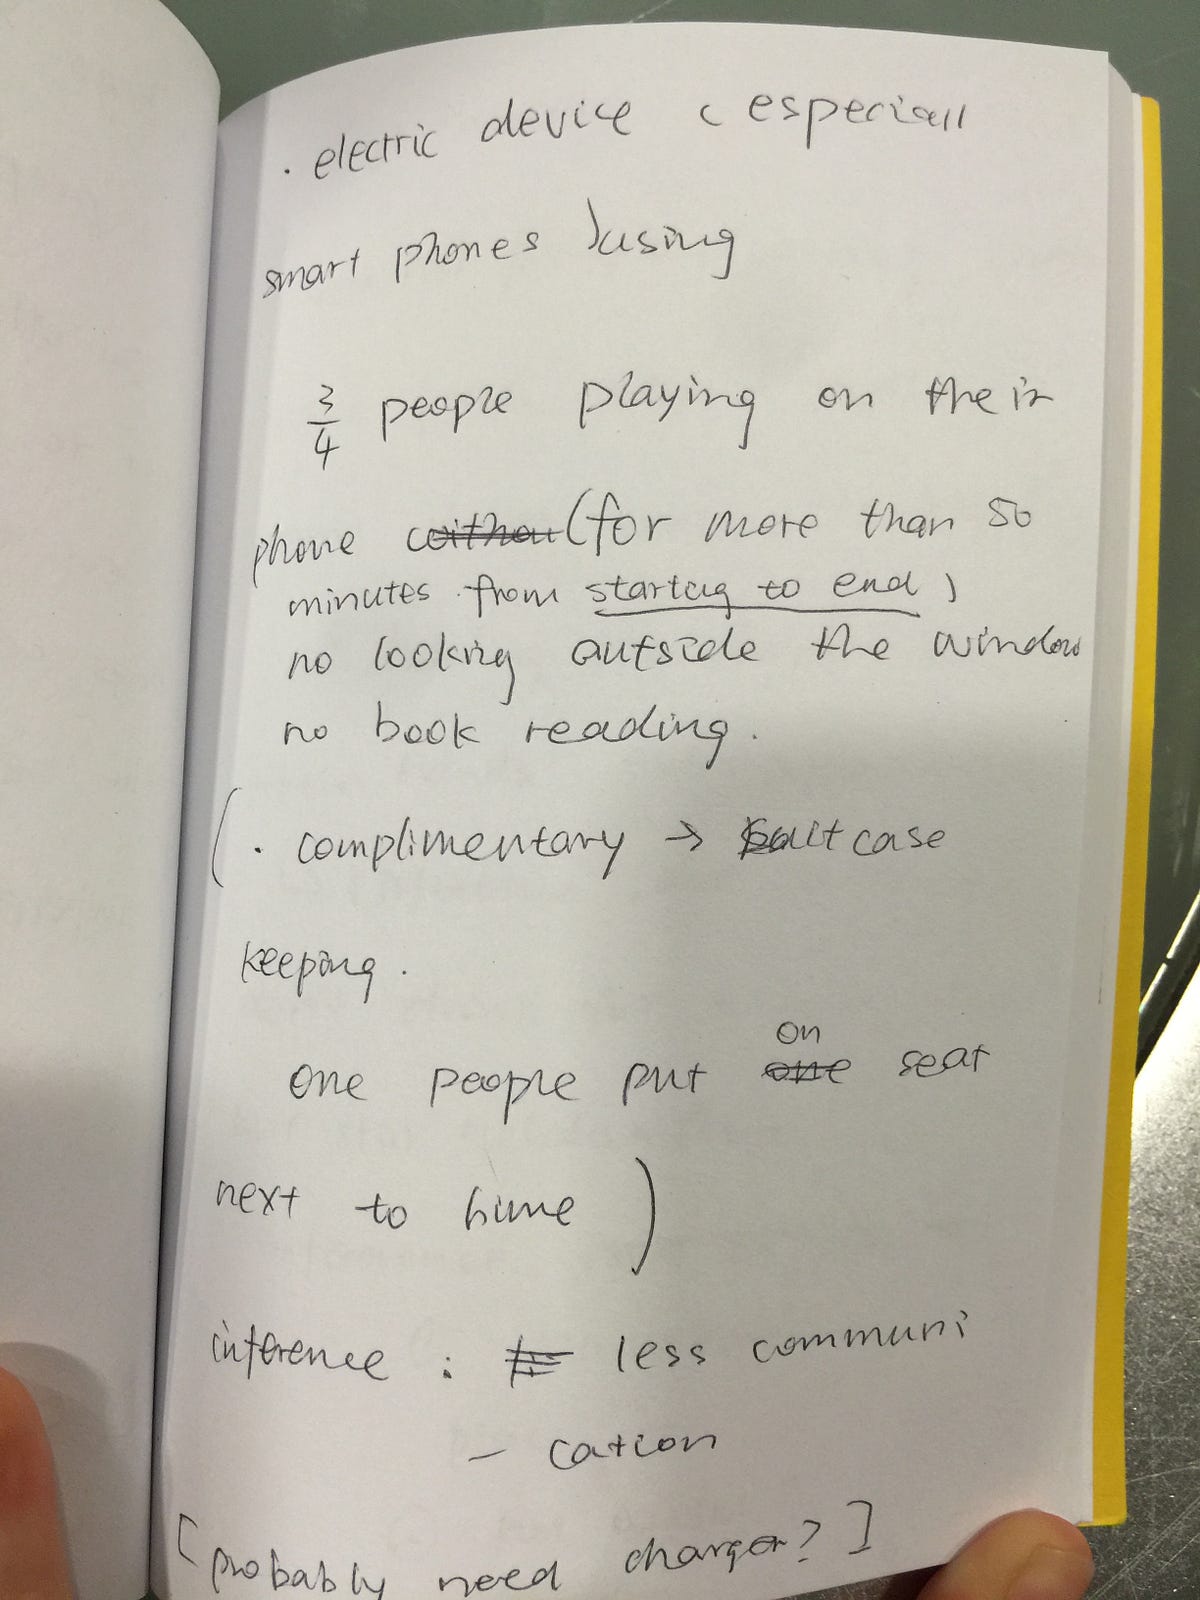 . electric device ( especiall
smart phones ) using
3/4 people playing on their
phone (for more than 50
minutes from starting to end)
no looking outside the window
no book reading.
( . complimentary → suitcase
keeping .
on
one people put seat
next to hime )
inference : less communi
- cation
[ probably need charger? ]